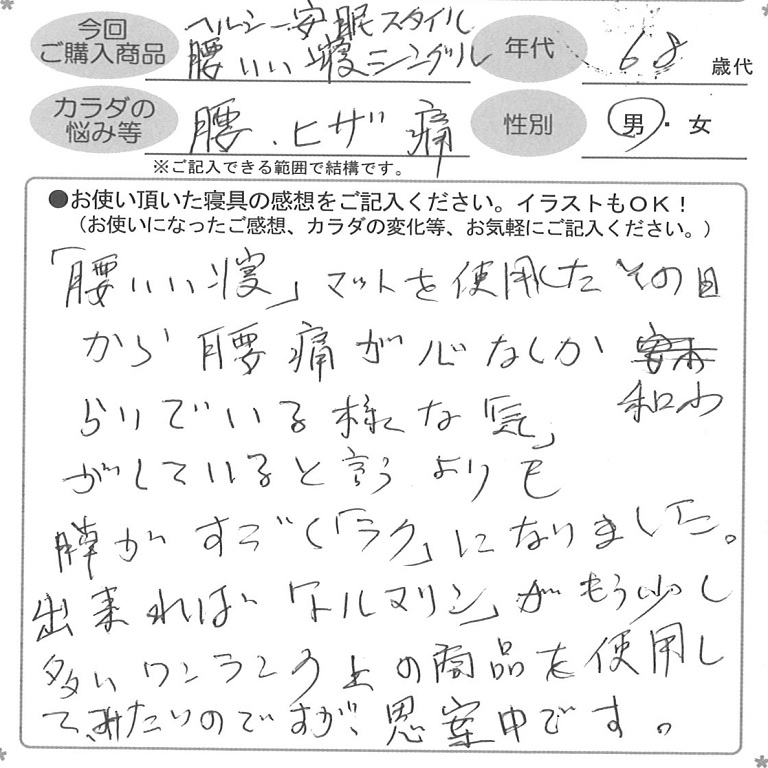 今回
ご購入商品
ヘルシー安眠スタイル
腰いい寝シングル
年代
68
歳代
カラダの
悩み等
腰、ヒザ痛
性別
男・女
※ご記入できる範囲で結構です。
●お使い頂いた寝具の感想をご記入ください。イラストもOK！
（お使いになったご感想、カラダの変化等、お気軽にご記入ください。）
「腰いい寝」マットを使用したその日
から腰痛が心なしか
和わ
らいでいる様な「気」
がしていると言うよりも
がすごく「ラク」になりました。
出来れば「トルマリン」がもう少し
多いワンランク上の商品を使用し
てみたいのですが、思案中です。